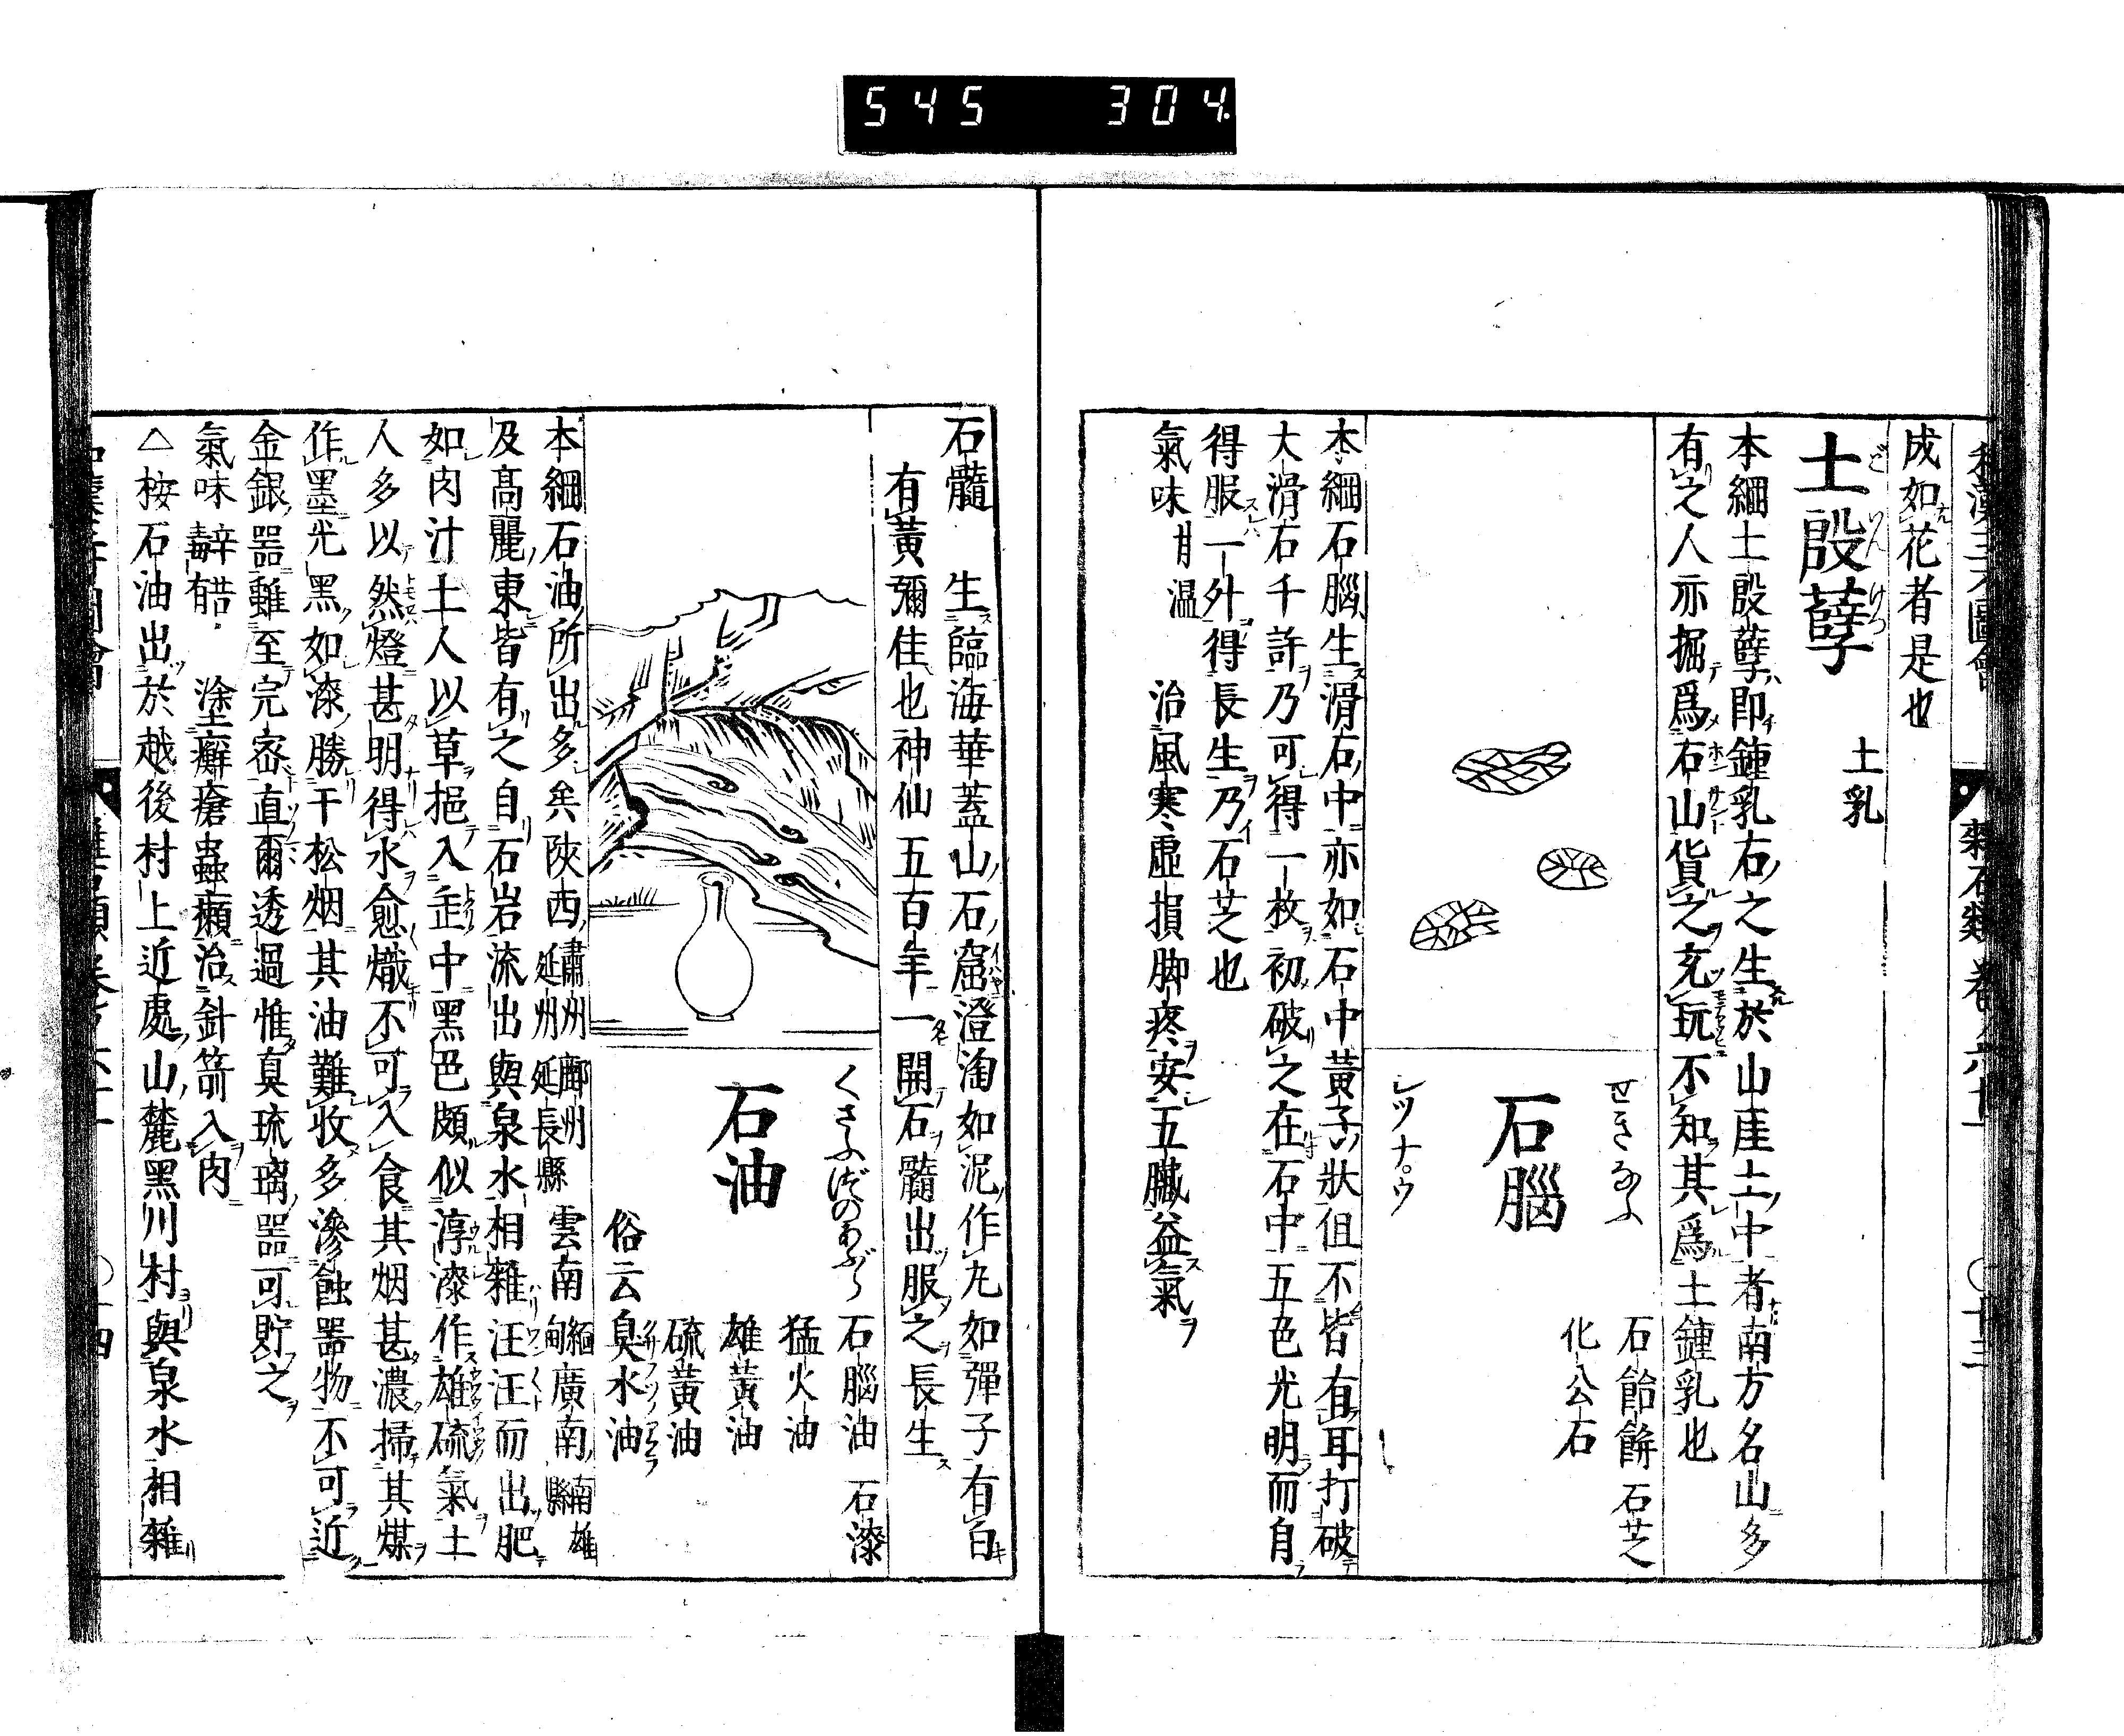 545 304
和漢三才圖會 雜石類 卷ノ六十一 〇十三
成如花者是也
土殷孽 土乳
どいんけつ
本綱土殷孽即鍾乳石之生於山崖土中者南方名山多
有之人亦掘爲石山貨之充玩不知其爲土鍾乳也
せきのふ
石腦
レツナ゜ウ
石飴餅 石芝
化公石
本綱石腦生滑石中亦如石中黃子狀但不皆有耳打破
大滑石千許乃可得一枚初破之在石中五色光明而自
得服一外得長生乃石芝也
氣味 甘温 治風寒虛損脚疼安五臟益氣
石髓 生臨海華蓋山石窟澄淘如泥作丸如彈子有白
有黃彌佳也神仙五百年一開石髓出服之長生
くさふづのあぶら
石油
石腦油 石漆
猛火油
雄黃油
硫黃油
俗云臭水油
本綱石油所出多矣陝西 肅州 鄜州 延州 延長縣 雲南 緬甸 廣南 南雄縣
及高麗東皆有之自石岩流出與泉水相雜汪汪而出肥
如肉汁土人以草挹入缶中黑色頗似淳漆作雄硫氣土
人多以然燈甚明得水愈熾不可入食其烟甚濃掃其煤
作墨光黑如漆勝于松烟其油難收多滲蝕器物不可近
金銀器雖至完密直爾透過惟真琉璃器可貯之
氣味 辛苦有毒 塗癬瘡蟲癩治針箭入肉
△桉石油出於越後村上近處山麓黑川村與泉水相雜